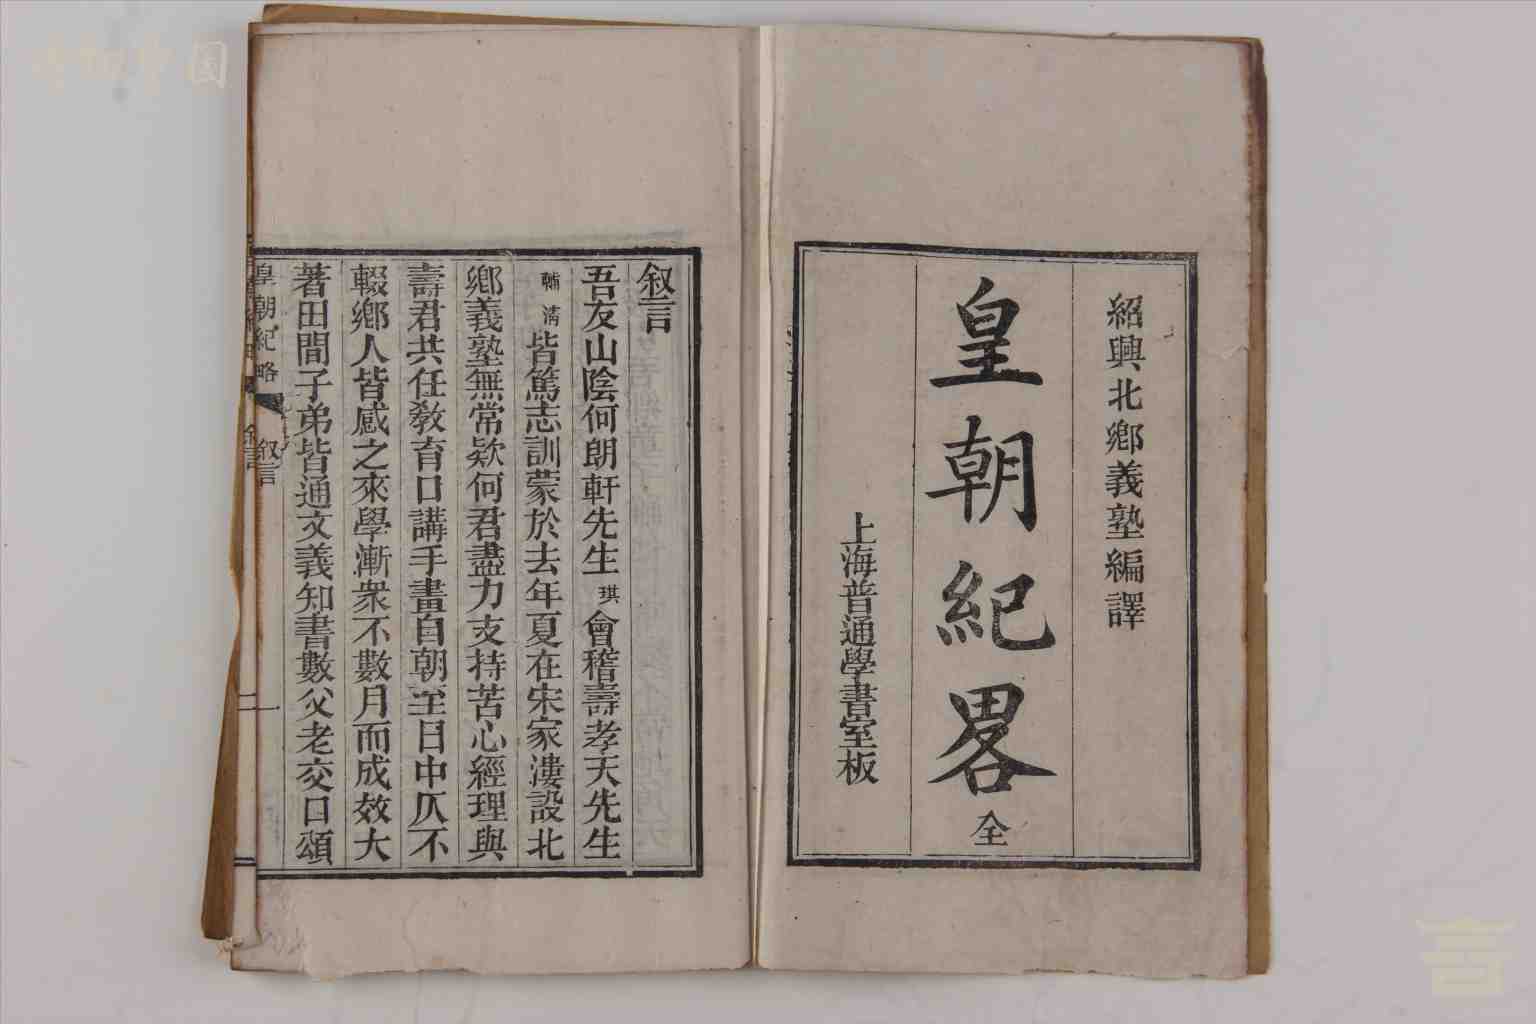 紹興北鄉義塾編譯
皇朝紀畧 全
上海普通學書室板
叙言
吾友山陰何朗軒先生琪會稽壽孝天先生
輔清皆篤志訓蒙於去年夏在宋家漊設北
鄉義塾無常欵何君盡力支持苦心經理與
壽君共任教育口講手畫自朝至日中仄不
輟鄉人皆感之來學漸衆不數月而成效大
著田間子弟皆通文義知書數父老交口頌
皇朝紀略 叙言 一